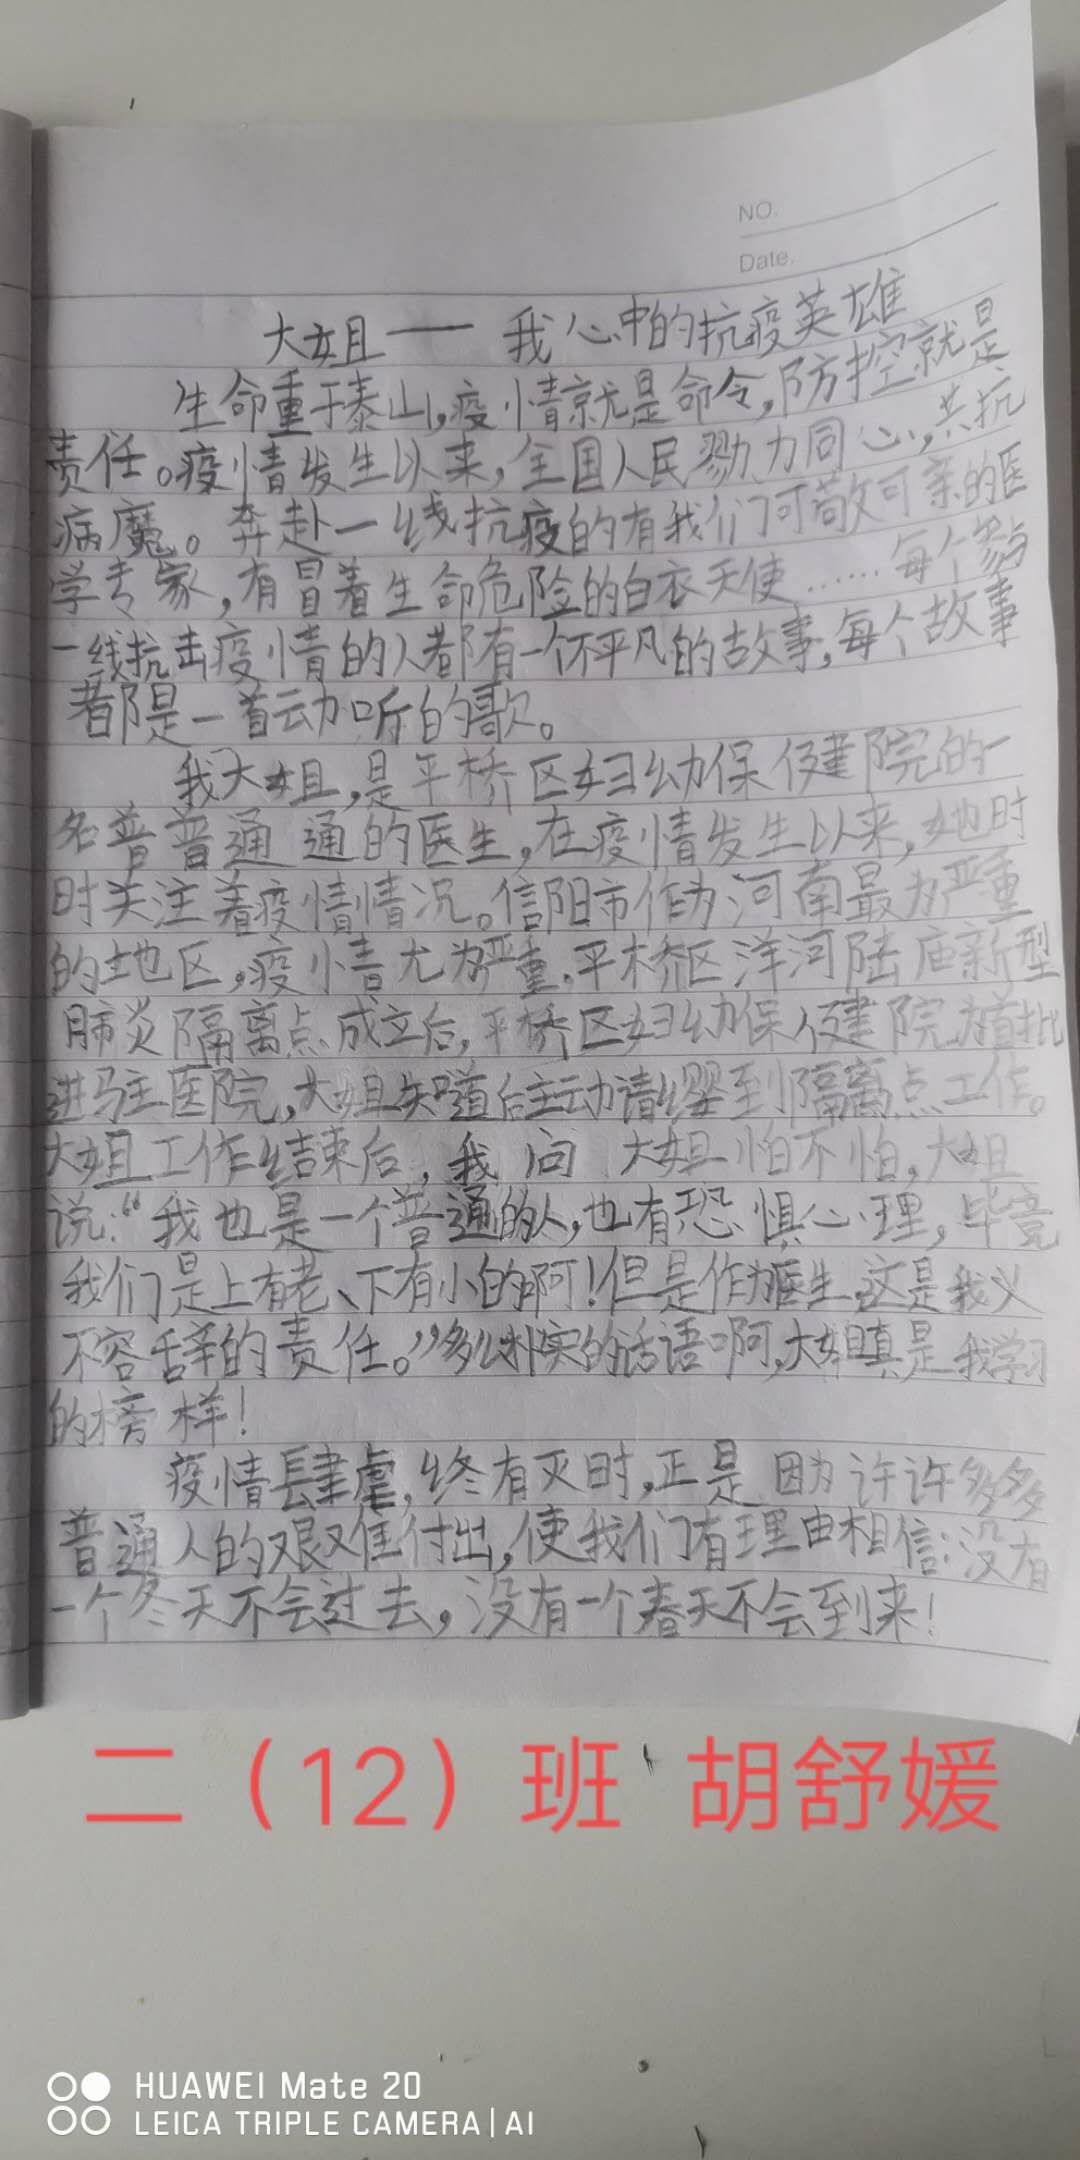 NO.
Date.
大姐——我心中的抗疫英雄
生命重于泰山,疫情就是命令,防控就是
责任。疫情发生以来,全国人民勠力同心,共抗
病魔。奔赴一线抗疫的有我们可敬可亲的医
学专家,有冒着生命危险的白衣天使……每个参与
一线抗击疫情的人都有一个不平凡的故事,每个故事
都是一首动听的歌。
我大姐,是平桥区妇幼保健院的一
名普普通通的医生,在疫情发生以来,她时
时关注着疫情情况。信阳市作为河南最为严重
的地区,疫情尤为严重.平桥区洋河陆庙新型
肺炎隔离点成立后,平桥区妇幼保健院为首批
进驻医院,大姐知道后主动请缨到隔离点工作。
大姐工作结束后,我问大姐怕不怕,大姐
说:“我也是一个普通的人,也有恐惧心理,毕竟
我们是上有老、下有小的啊!但是作为医生,这是我义
不容辞的责任。”多么朴实的话语啊,大姐真是我学习
的榜样!
疫情肆虐,终有灭时,正是因为许许多多
普通人的艰难付出,使我们有理由相信:没有
一个冬天不会过去,没有一个春天不会到来!
二（12）班 胡舒媛
HUAWEI Mate 20
LEICA TRIPLE CAMERA | AI